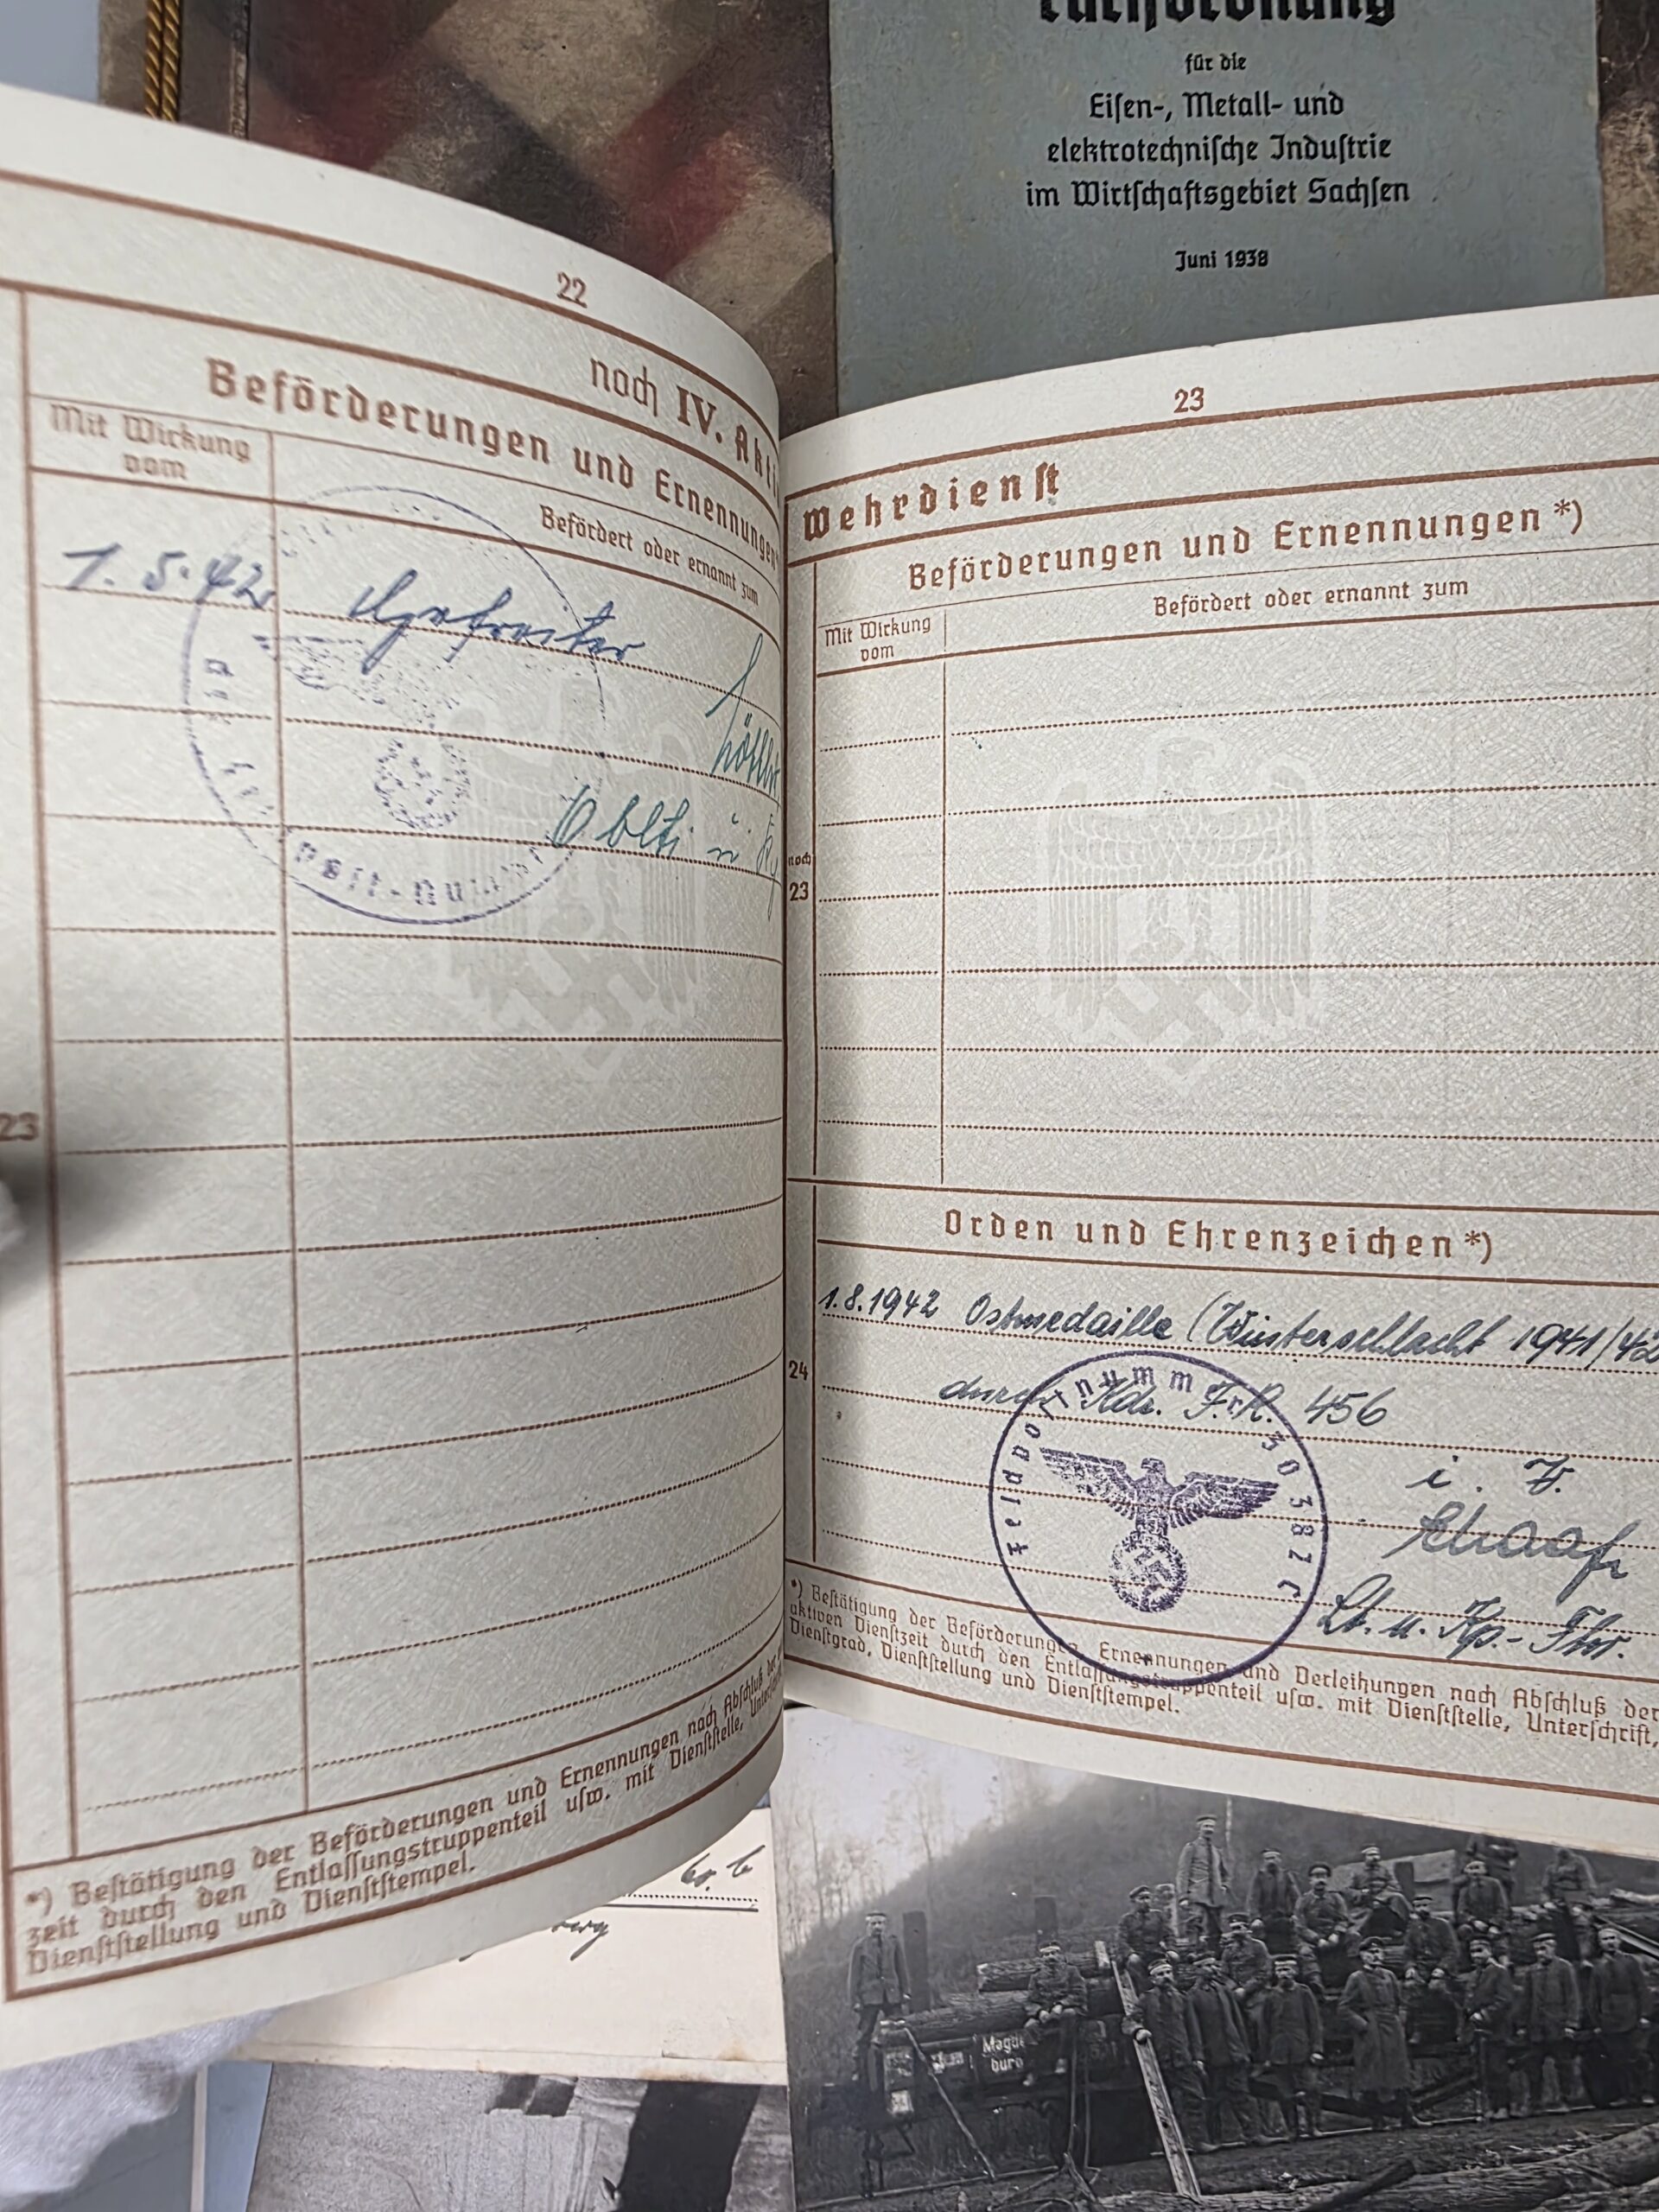 für die
Eisen-, Metall- und
elektrotechnische Industrie
im Wirtschaftsgebiet Sachsen
Juni 1938
22
noch IV. Akti
Beförderungen und Ernennungen
Mit Wirkung
vom
Befördert oder ernannt zum
1. 5. 42 Gefreiter
Oblt. u.
23
*) Bestätigung der Beförderungen und Ernennungen nach Abschluß der
zeit durch den Entlassungstruppenteil usw. mit Dienststelle,
Dienststellung und Dienststempel.
23
Wehrdienst
Beförderungen und Ernennungen *)
Mit Wirkung
vom
Befördert oder ernannt zum
noch
23
Orden und Ehrenzeichen *)
24
1.8.1942 Ostmedaille (Winterschlacht 1941/42
durch Kdr. 456
i. V.
Lt. u. Kp.-Fhr.
*) Bestätigung der Beförderungen, Ernennungen und Verleihungen nach Abschluß der
aktiven Dienstzeit durch den Entlassungstruppenteil usw. mit Dienststelle, Unterschrift,
Dienstgrad, Dienststellung und Dienststempel.
Magde
burg